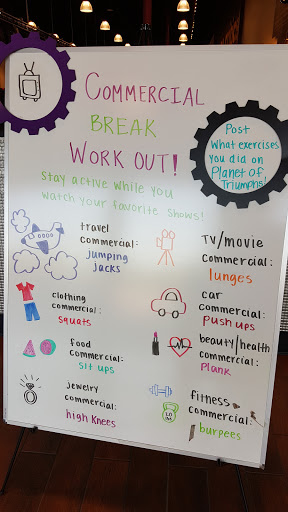 COMMERCIAL
BREAK
WORK OUT!
Stay active while you
watch your favorite shows!
Post
What exercises
you did on
Planet of
Triumphs!
travel
commercial:
jumping
jacks
TV/movie
commercial:
lunges
clothing
commercial:
squats
car
commercial:
push ups
food
commercial:
sit ups
beauty/health
commercial:
plank
jewelry
commercial:
high knees
fitness
commercial:
burpees